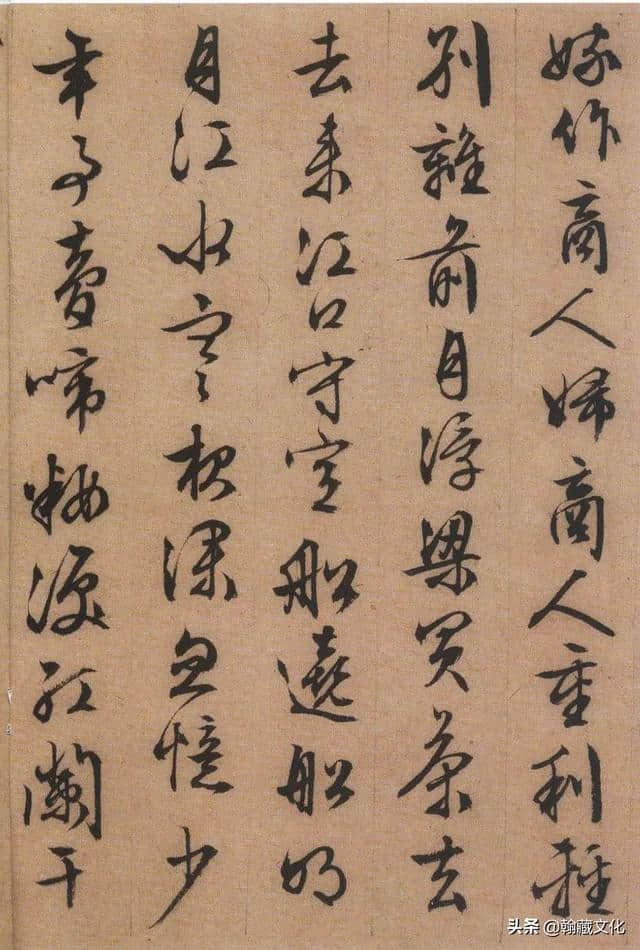 嫁作商人婦商人重利輕
別離前月浮梁買茶去
去來江口守空船遶船明
月江水寒夜深忽憶少
年事夢啼粧淚紅闌干
头条 @翰藏文化